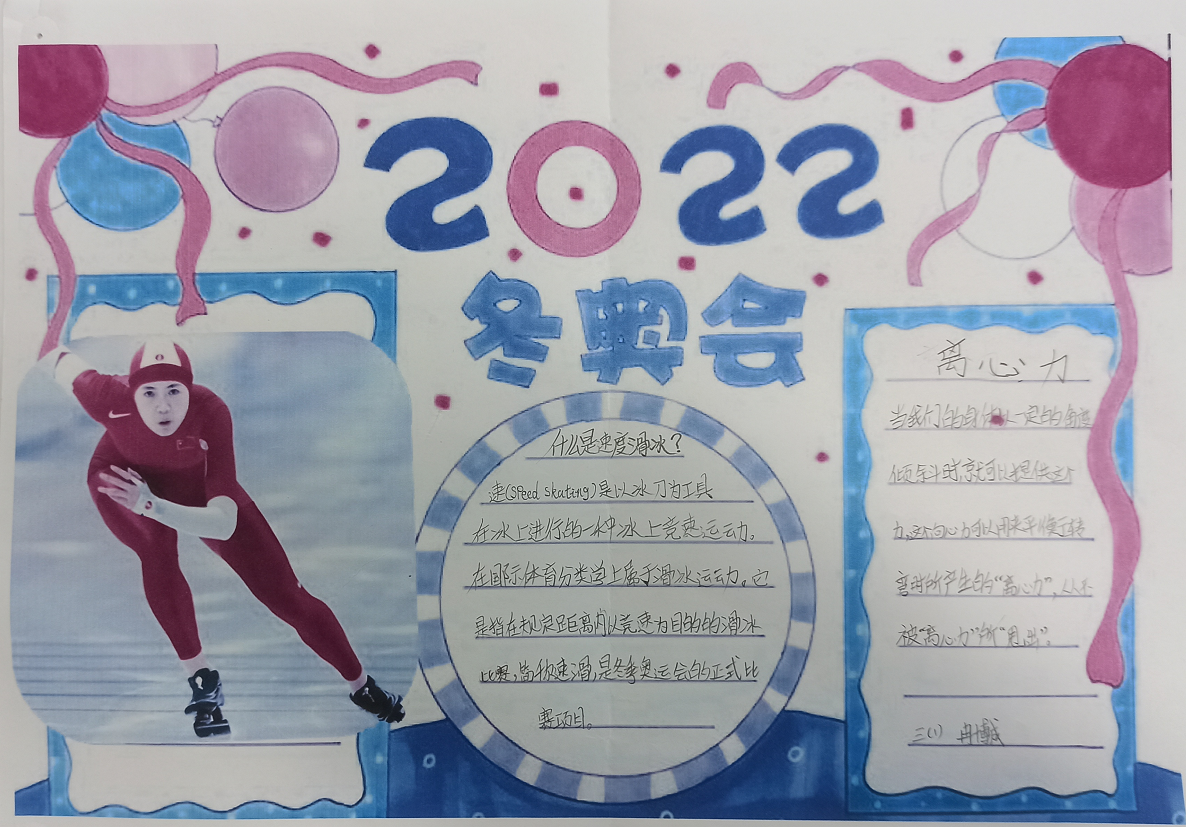 2022
冬奥会
什么是速度滑冰?
速(Speed skating)是以冰刀为工具
在冰上进行的一种冰上竞速运动。
在国际体育分类总上属于滑冰运动。它
是指在规定距离内以竞速为目的的滑冰
比赛,简称速滑,是冬季奥运会的正式比
赛项目。
离心力
当我们的身体以一定的角度
倾斜时,就可以提供这个
力,这个向心力可以用来平衡转
弯时所产生的“离心力”,从不
被“离心力”所“甩出”。
三(1) 冉博